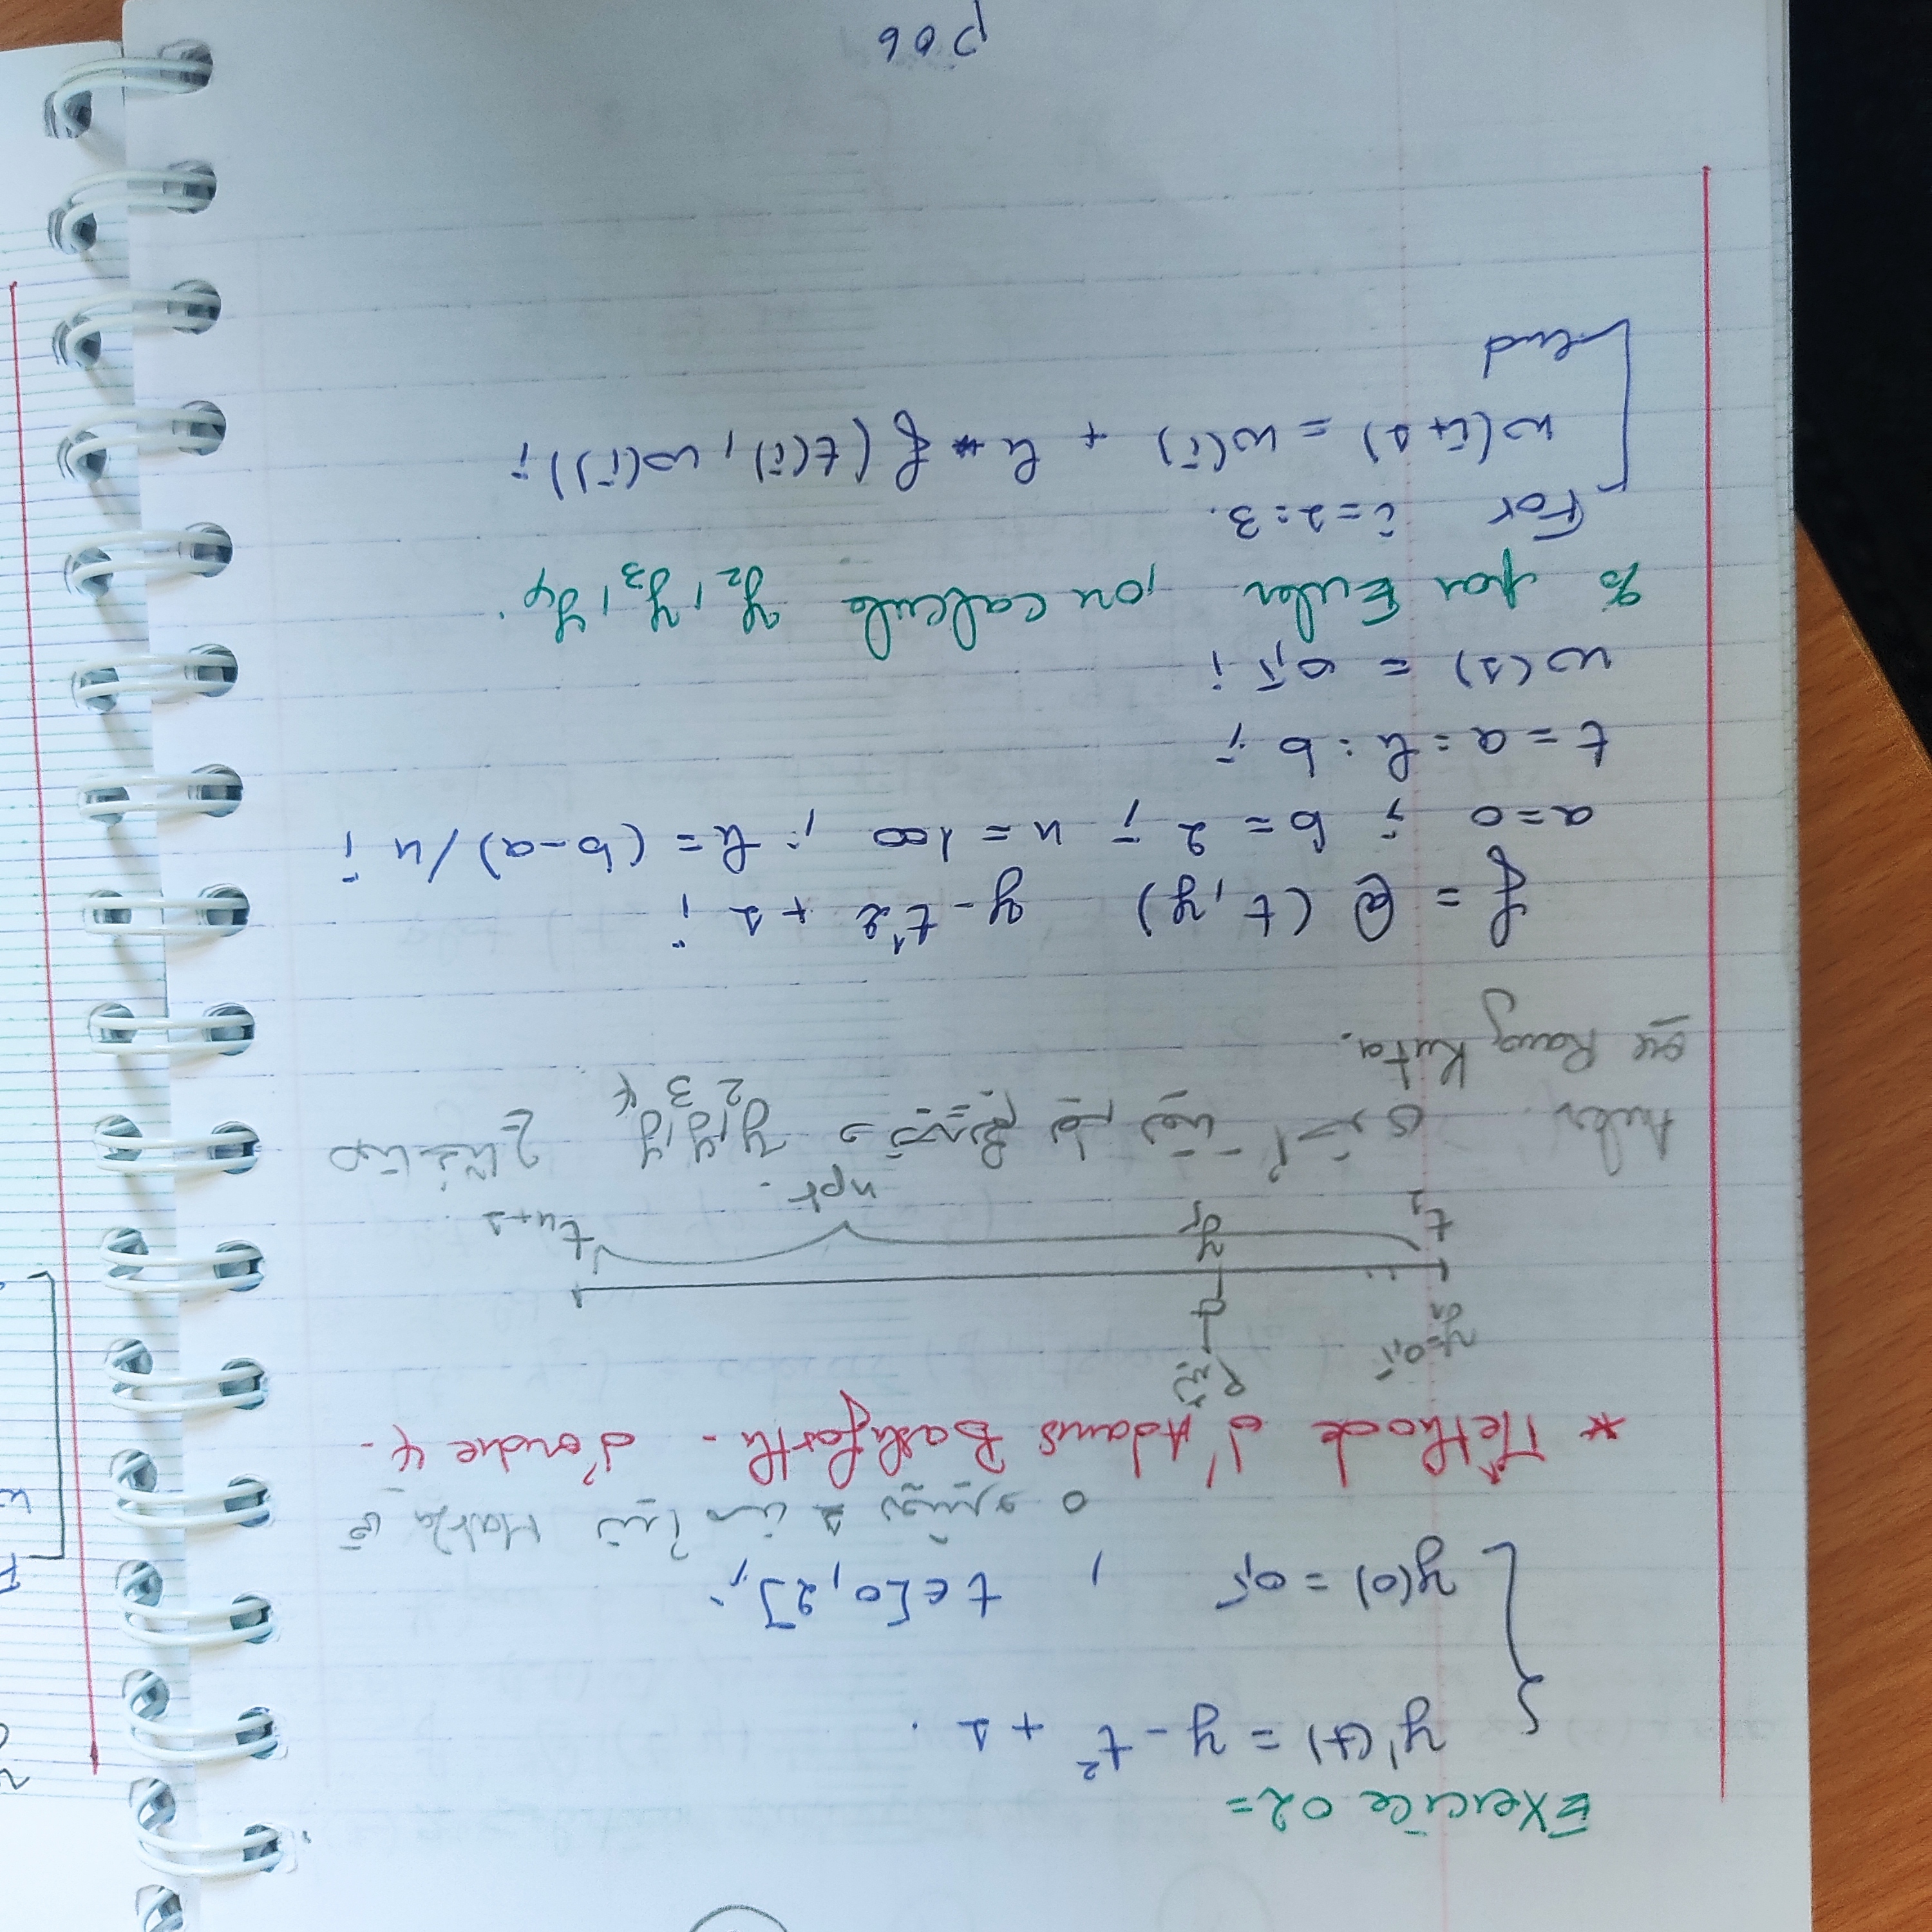 Exercice 02=
y'(t) = y - t² + 1 .
y(0) = 0,5 , t ∈ [0, 2],;
في Matla نبدأ من 1 0
* Méthode d'Adams Bashforth - d'ordre 4 -
y₁=0,5 نبدأ
t₁ y₅ tₙ₊₁
npt.
نحتاج y₂, y₃, y₄ و بطريقة أخرى Auler
ou Rang Kuta.
f = @ (t, y) y - t^2 + 1 ;
a=0 ; b= 2 ; n= 100 ; h= (b-a)/n ;
t = a : h : b ;
w(1) = 0,5 ;
% par Euler , on calcule y₂, y₃, y₄.
For i=1:3.
w(i+1) = w(i) + h * f (t(i), w(i)) ;
end
p06